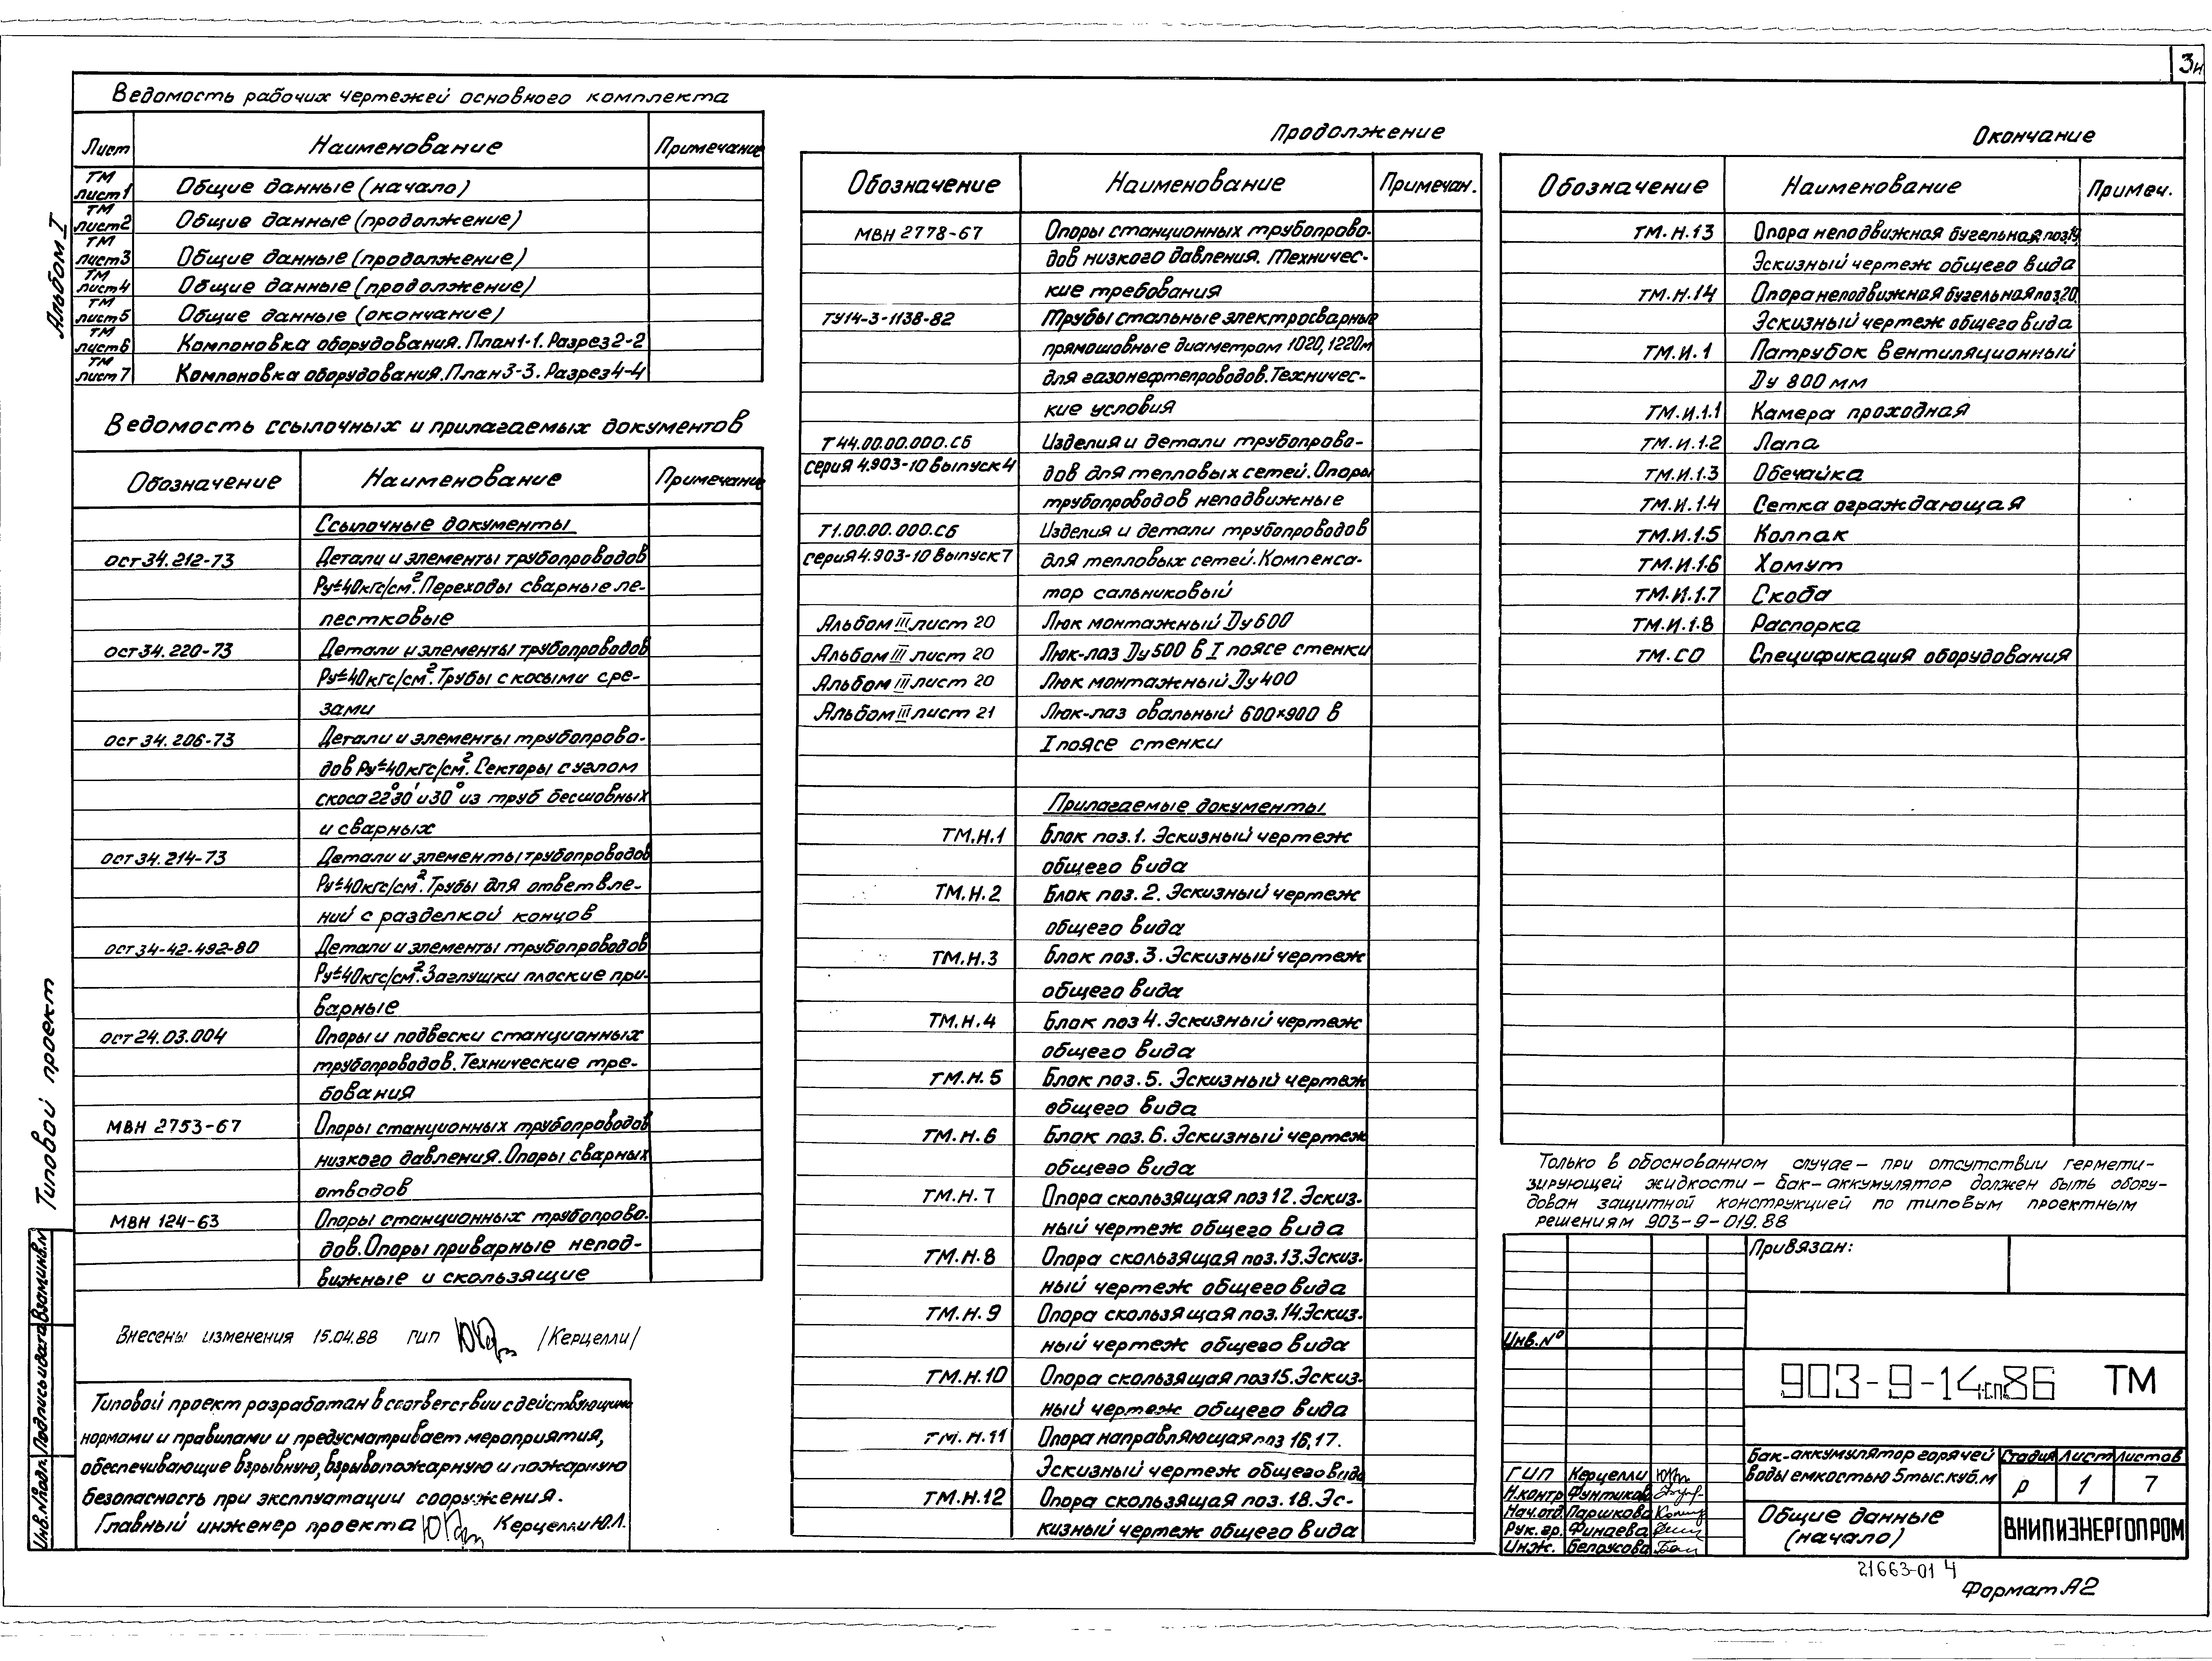 3и
Альбом I
Типовой проект
Ведомость рабочих чертежей основного комплекта
Лист Наименование Примечание
ТМ лист1 Общие данные (начало)
ТМ лист2 Общие данные (продолжение)
ТМ лист3 Общие данные (продолжение)
ТМ лист4 Общие данные (продолжение)
ТМ лист5 Общие данные (окончание)
ТМ лист6 Компоновка оборудования. План1-1. Разрез2-2
ТМ лист7 Компоновка оборудования. План3-3. Разрез4-4
Ведомость ссылочных и прилагаемых документов
Обозначение Наименование Примечание
Ссылочные документы
ОСТ 34.212-73 Детали и элементы трубопроводов
Ру≤40кгс/см². Переходы сварные ле-
пестковые
ОСТ 34.220-73 Детали и элементы трубопроводов
Ру≤40кгс/см². Трубы с косыми сре-
зами
ОСТ 34.206-73 Детали и элементы трубопрово-
дов Ру≤40кгс/см². Секторы с углом
скоса 22°30' и 30° из труб бесшовных
и сварных
ОСТ 34.214-73 Детали и элементы трубопроводов
Ру≤40кгс/см². Трубы для ответвле-
ний с разделкой концов
ОСТ 34-42-492-80 Детали и элементы трубопроводов
Ру≤40кгс/см². Заглушки плоские при-
варные
ОСТ 24.03.004 Опоры и подвески станционных
трубопроводов. Технические тре-
бования
МВН 2753-67 Опоры станционных трубопроводов
низкого давления. Опоры сварных
отводов
МВН 124-63 Опоры станционных трубопрово-
дов. Опоры приварные непод-
вижные и скользящие
Внесены изменения 15.04.88 ГИП /Керцелли/
Типовой проект разработан в соответствии с действующими
нормами и правилами и предусматривает мероприятия,
обеспечивающие взрывную, взрывопожарную и пожарную
безопасность при эксплуатации сооружения.
Главный инженер проекта Керцелли Ю.Л.
Инв.№подл. Подпись и дата Взам.инв.№
Продолжение
Обозначение Наименование Примечан.
МВН 2778-67 Опоры станционных трубопрово-
дов низкого давления. Техничес-
кие требования
ТУ14-3-1138-82 Трубы стальные электросварные
прямошовные диаметром 1020, 1220м
для газонефтепроводов. Техничес-
кие условия
Т44.00.00.000.СБ Изделия и детали трубопрово-
серия 4.903-10 выпуск 4 дов для тепловых сетей. Опоры
трубопроводов неподвижные
Т1.00.00.000.СБ Изделия и детали трубопроводов
серия 4.903-10 выпуск 7 для тепловых сетей. Компенса-
тор сальниковый
Альбом III лист 20 Люк монтажный Ду600
Альбом III лист 20 Люк-лаз Ду500 в I поясе стенки
Альбом III лист 20 Люк монтажный Ду400
Альбом III лист 21 Люк-лаз овальный 600×900 в
I поясе стенки
Прилагаемые документы
ТМ.Н.1 Блок поз.1. Эскизный чертеж
общего вида
ТМ.Н.2 Блок поз.2. Эскизный чертеж
общего вида
ТМ.Н.3 Блок поз.3. Эскизный чертеж
общего вида
ТМ.Н.4 Блок поз 4. Эскизный чертеж
общего вида
ТМ.Н.5 Блок поз.5. Эскизный чертеж
общего вида
ТМ.Н.6 Блок поз.6. Эскизный чертеж
общего вида
ТМ.Н.7 Опора скользящая поз 12. Эскиз-
ный чертеж общего вида
ТМ.Н.8 Опора скользящая поз.13. Эскиз-
ный чертеж общего вида
ТМ.Н.9 Опора скользящая поз.14. Эскиз-
ный чертеж общего вида
ТМ.Н.10 Опора скользящая поз15. Эскиз-
ный чертеж общего вида
ТМ.Н.11 Опора направляющая поз 16,17.
Эскизный чертеж общего вида
ТМ.Н.12 Опора скользящая поз.18. Эс-
кизный чертеж общего вида
Окончание
Обозначение Наименование Примеч.
ТМ.Н.13 Опора неподвижная бугельная поз.19.
Эскизный чертеж общего вида
ТМ.Н.14 Опора неподвижная бугельная поз.20.
Эскизный чертеж общего вида
ТМ.И.1 Патрубок вентиляционный
Ду 800 мм
ТМ.И.1.1 Камера проходная
ТМ.И.1.2 Лапа
ТМ.И.1.3 Обечайка
ТМ.И.1.4 Сетка ограждающая
ТМ.И.1.5 Колпак
ТМ.И.1.6 Хомут
ТМ.И.1.7 Скоба
ТМ.И.1.8 Распорка
ТМ.СО Спецификация оборудования
Только в обоснованном случае – при отсутствии гермети-
зирующей жидкости – бак-аккумулятор должен быть обору-
дован защитной конструкцией по типовым проектным
решениям 903-9-019.88
Привязан:
Инв.№
903-9-14сп86 ТМ
Бак-аккумулятор горячей
воды емкостью 5тыс.куб.м
Стадия Лист Листов
Р 1 7
ГИП Керцелли
Н.контр Фунтикова
Нач.отд. Паршкова
Рук.гр. Финаева
Инж. Белоусова
Общие данные
(начало)
ВНИПИЭНЕРГОПРОМ
21663-01 4
Формат А2